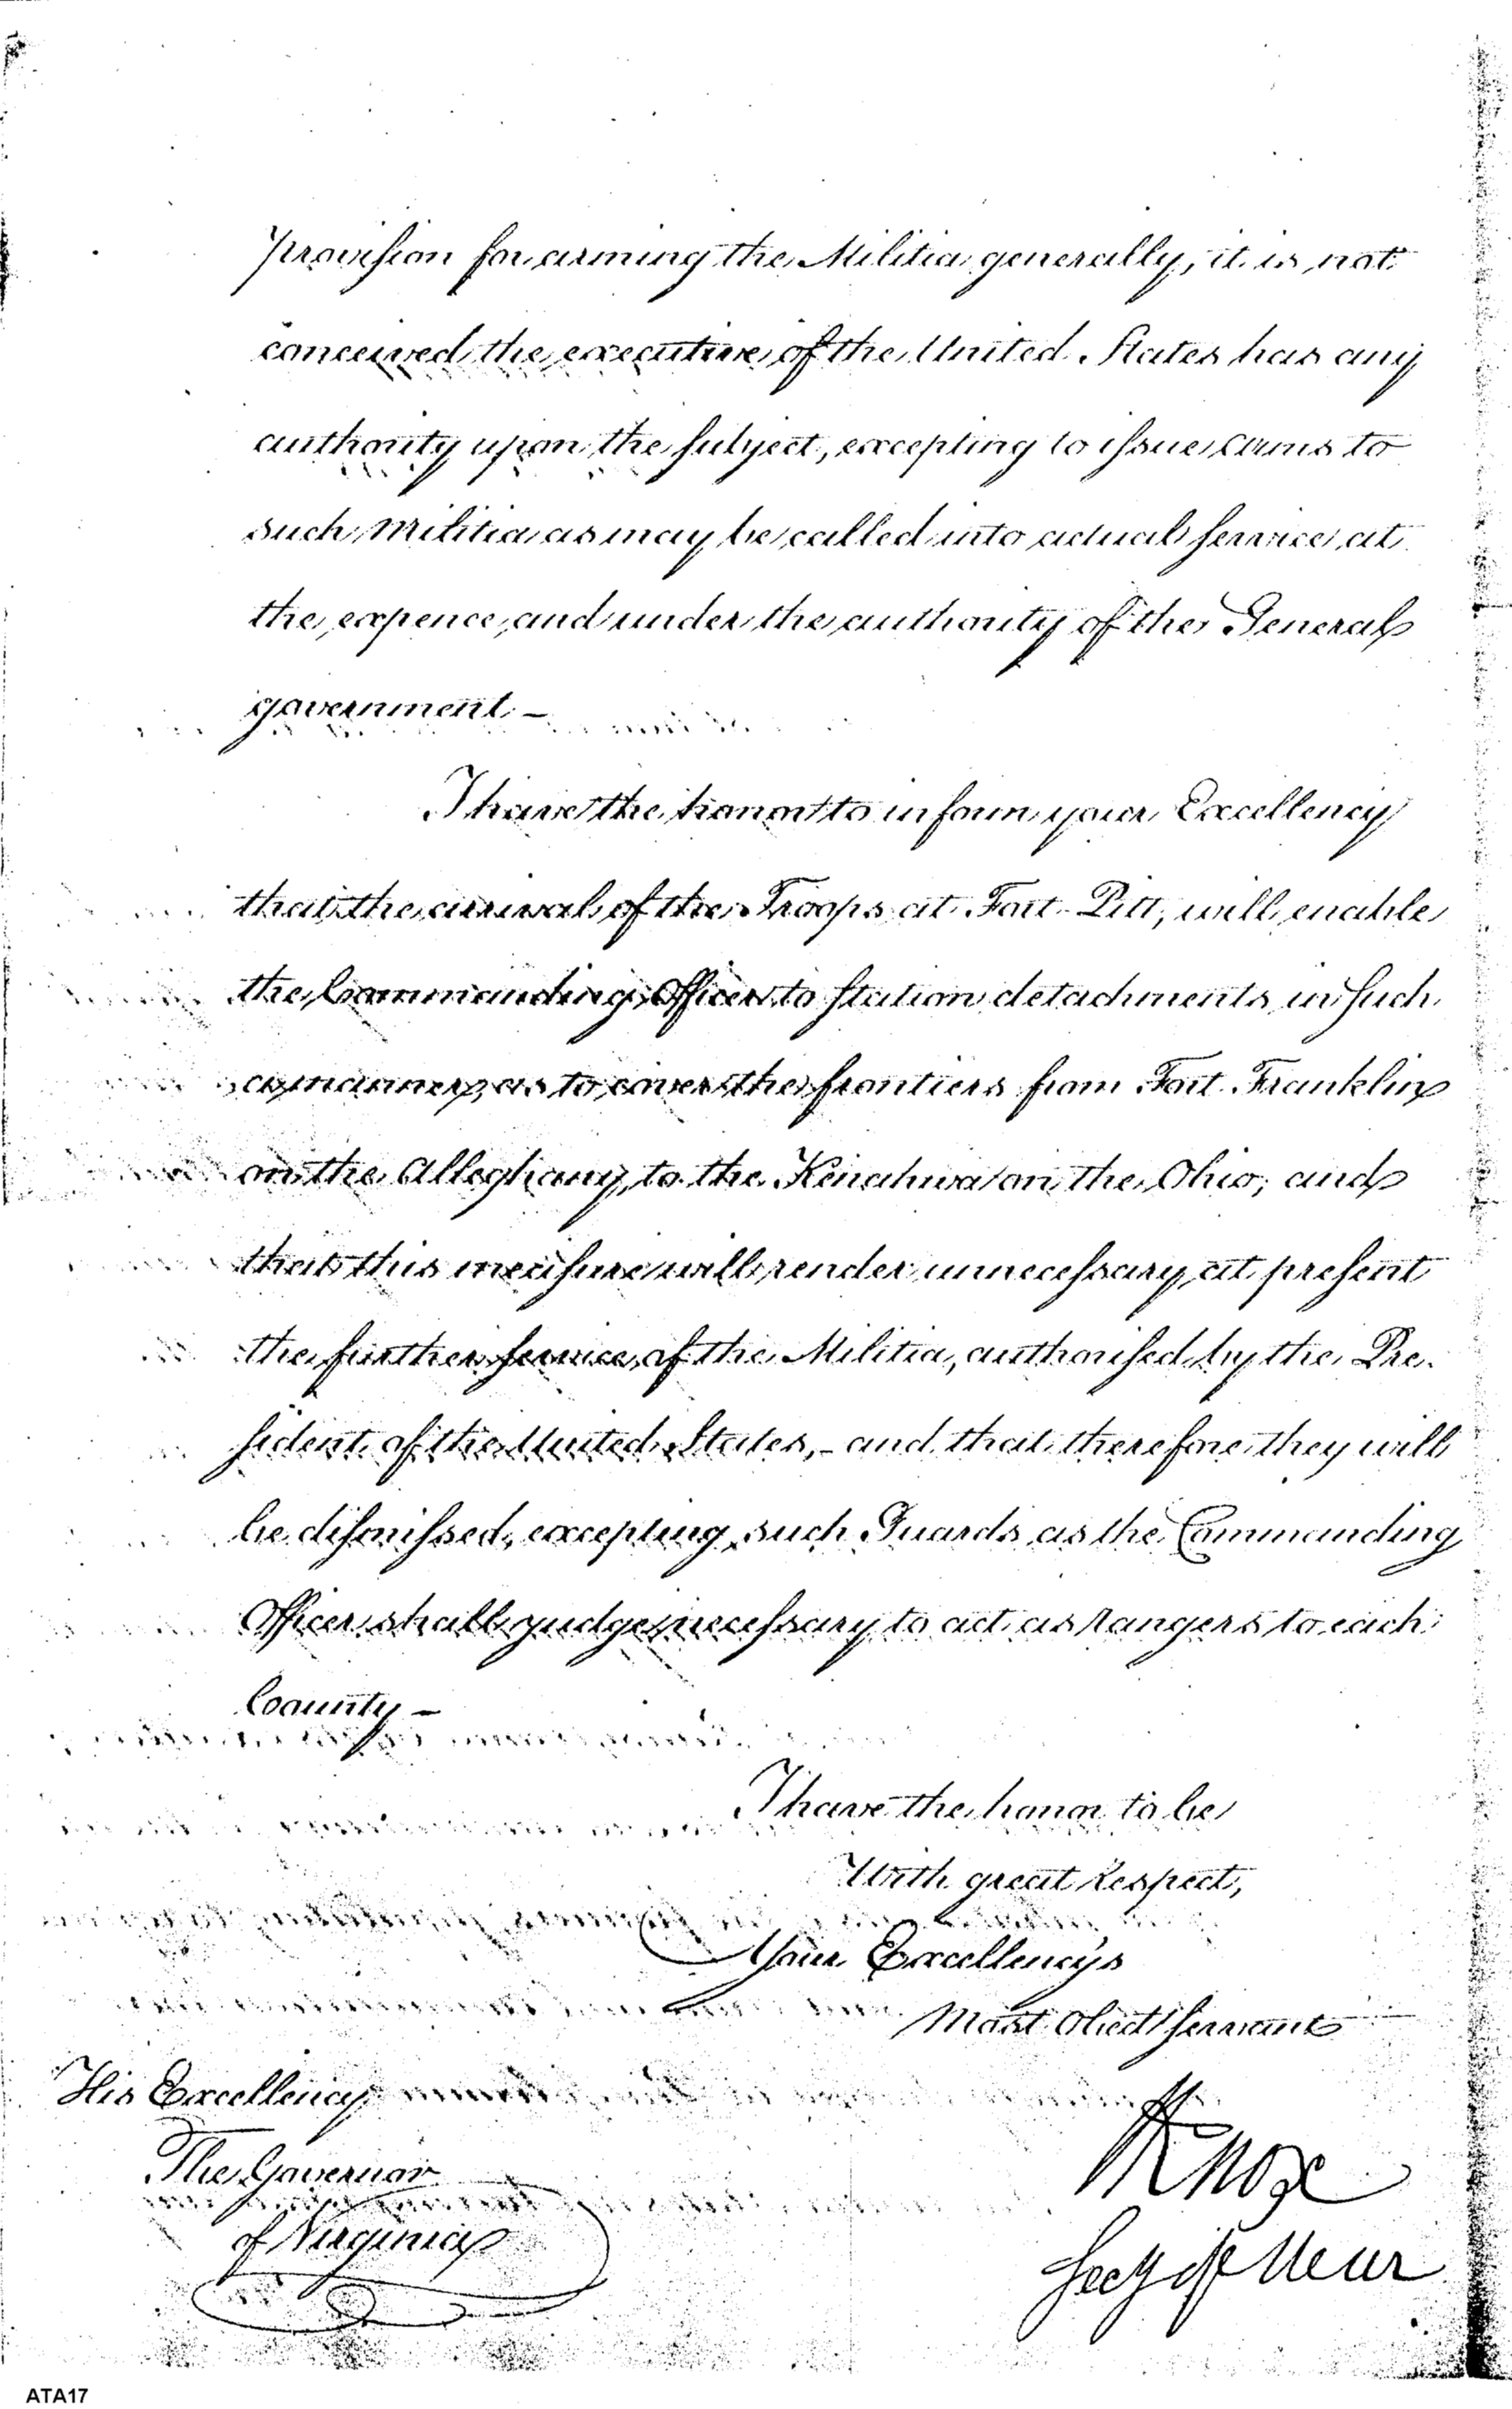 provision for arming the Militia generally, it is not
conceived the executive of the United States has any
authority upon the subject, excepting to issue arms to
such militia as may be called into actual service at
the expence, and under the authority of the General
government. –
I have the honor to inform your Excellency
that the arrival of the Troops at Fort Pitt, will enable
the Commanding Officer to station detachments in such
a manner, as to cover the frontiers from Fort Franklin
on the Alleghany, to the Kenahwa on the Ohio; and
that this measure will render unnecessary at present
the further service of the Militia, authorised by the Pre-
sident of the United States, – and that therefore they will
be dismissed, excepting such Guards as the Commanding
Officer shall judge necessary to act as Rangers to each
County –
I have the honor to be
With great Respect,
Your Excellencys
Most Obedt Servant
His Excellency
The Governor
of Virginia
HKnox
Secy of War
ATA17